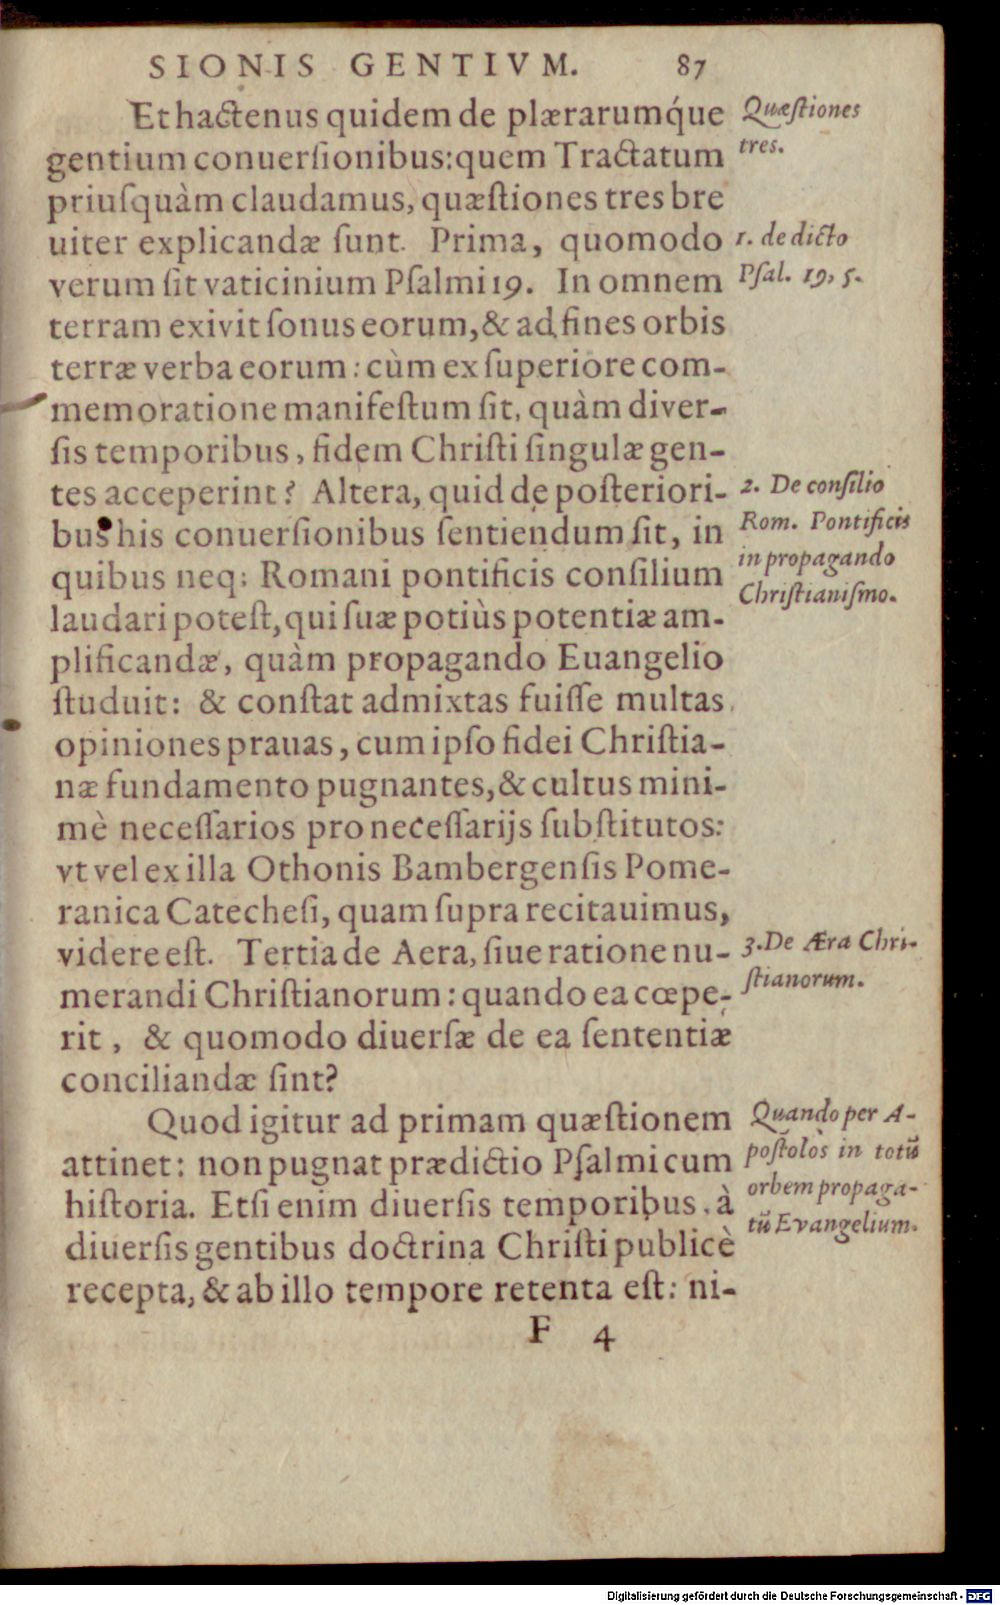 SIONIS GENTIVM. 87
Et hactenus quidem de plærarumq́ue
gentium conuerſionibus: quem Tractatum
priuſquàm claudamus, quæſtiones tres bre
uiter explicandæ ſunt. Prima, quomodo
verum ſit vaticinium Pſalmi 19. In omnem
terram exivit ſonus eorum, & ad fines orbis
terræ verba eorum: cùm ex ſuperiore com-
memoratione manifeſtum ſit, quàm diver-
ſis temporibus, fidem Chriſti ſingulæ gen-
tes acceperint? Altera, quid de poſteriori-
bus his conuerſionibus ſentiendum ſit, in
quibus neq; Romani pontificis conſilium
laudari poteſt, qui ſuæ potiùs potentiæ am-
plificandæ, quàm propagando Euangelio
ſtuduit: & conſtat admixtas fuiſſe multas
opiniones prauas, cum ipſo fidei Chriſtia-
næ fundamento pugnantes, & cultus mini-
mè neceſſarios pro neceſſarijs ſubſtitutos:
vt vel ex illa Othonis Bambergenſis Pome-
ranica Catecheſi, quam ſupra recitauimus,
videre eſt. Tertia de Aera, ſiue ratione nu-
merandi Chriſtianorum: quando ea cœpe-
rit, & quomodo diuerſæ de ea ſententiæ
conciliandæ ſint?
Quod igitur ad primam quæſtionem
attinet: non pugnat prædictio Pſalmi cum
hiſtoria. Etſi enim diuerſis temporibus, à
diuerſis gentibus doctrina Chriſti publicè
recepta, & ab illo tempore retenta eſt: ni-
F 4
Quæſtiones
tres.
1. de dicto
Pſal. 19, 5.
2. De conſilio
Rom. Pontificis
in propagando
Chriſtianiſmo.
3. De Æra Chri-
ſtianorum.
Quando per A-
poſtolos in totũ
orbem propaga-
tũ Evangelium.
Digitalisierung gefördert durch die Deutsche Forschungsgemeinschaft - DFG